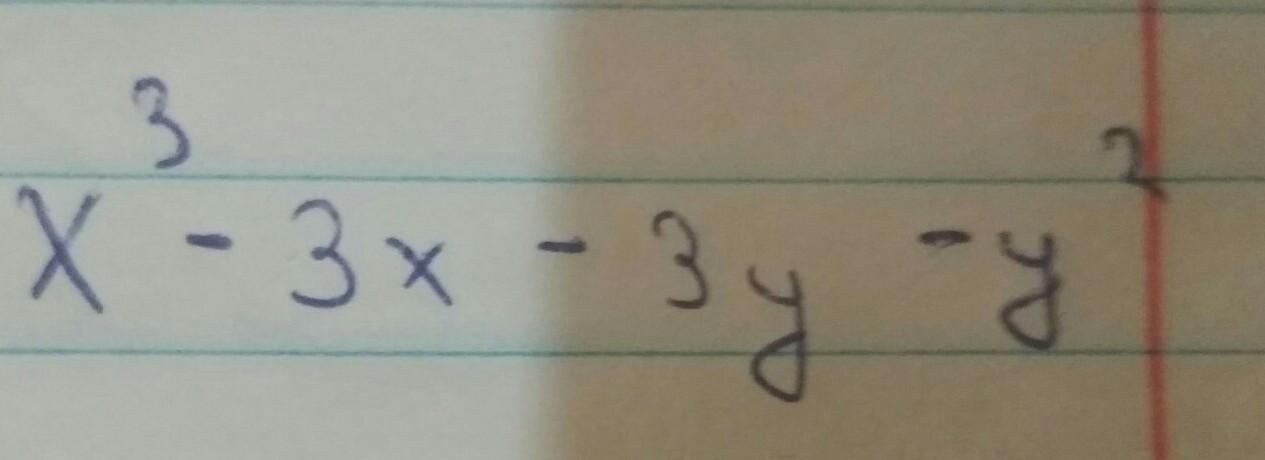 x³ - 3x - 3y - y²